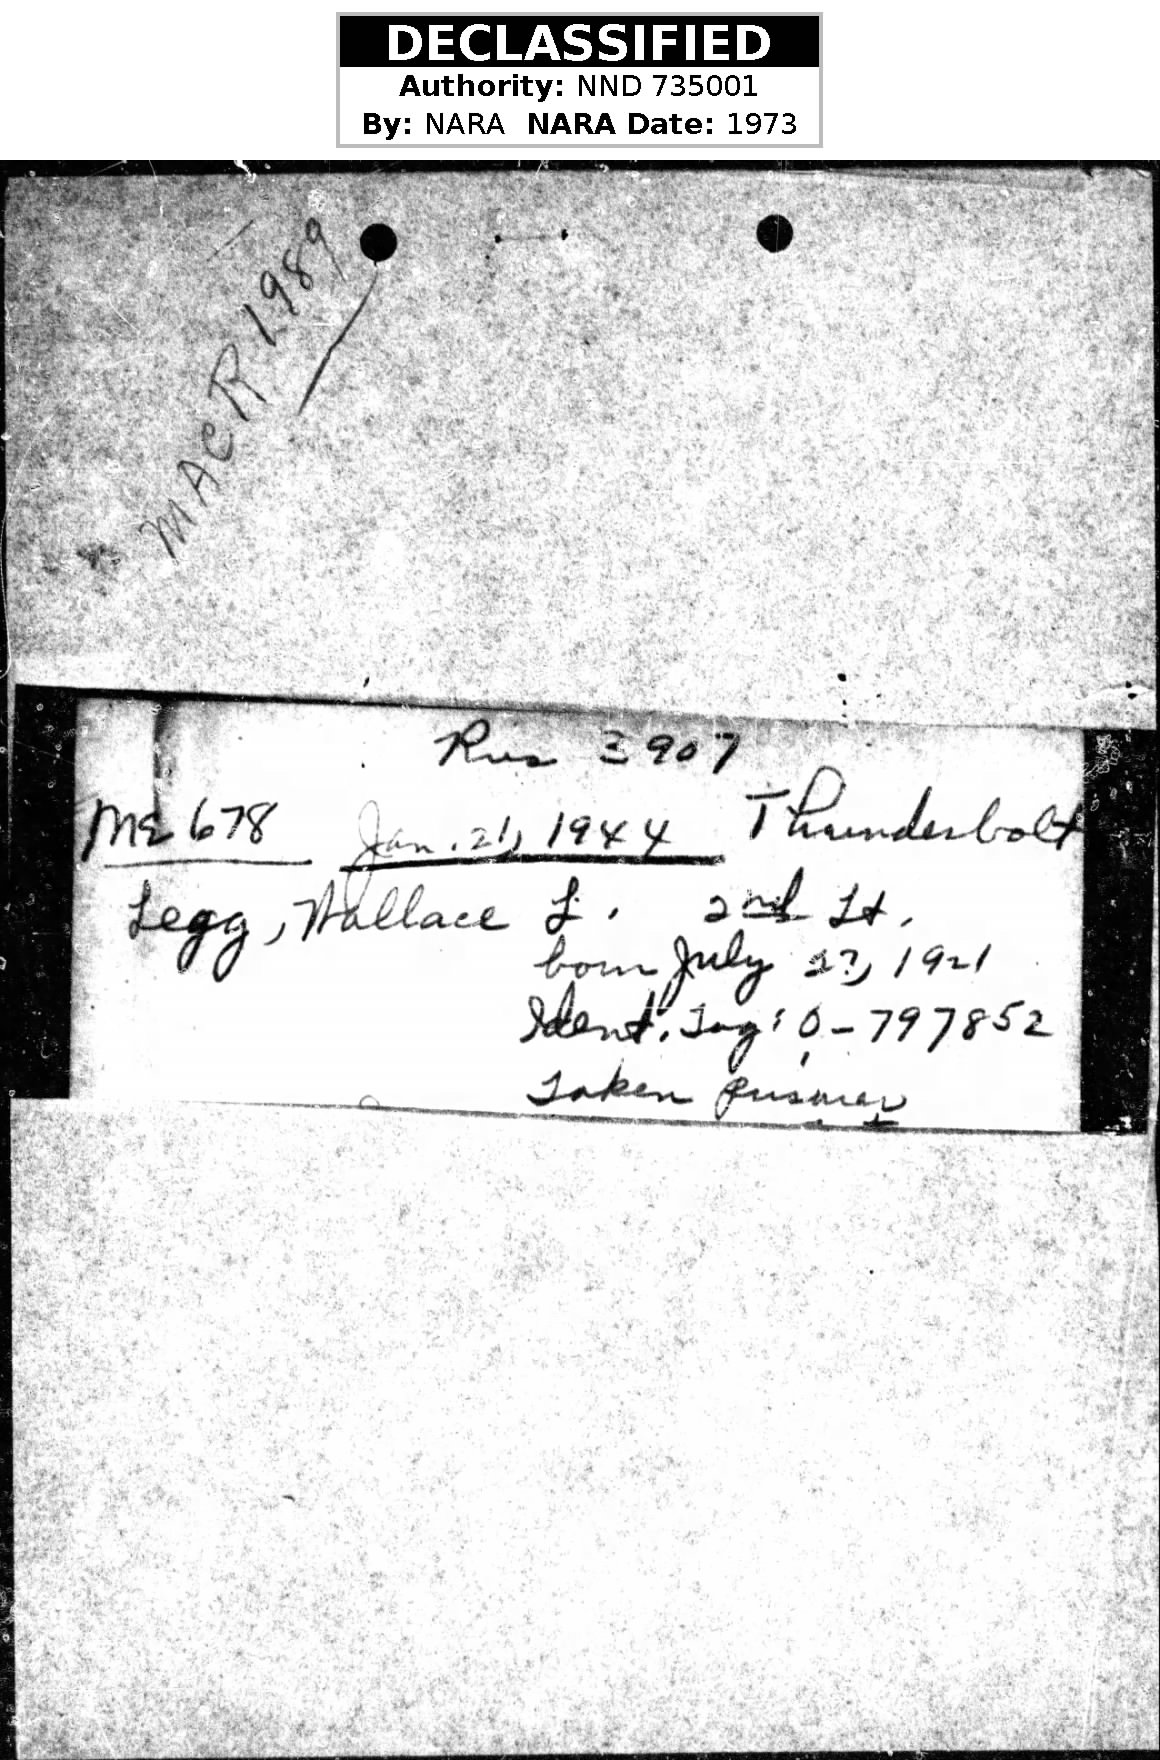 DECLASSIFIED
Authority: NND 735001
By: NARA NARA Date: 1973
MACR 1989
Rus 3907
ME 678 Jan. 21, 1944 Thunderbolt
Legg, Wallace L. 2nd Lt.
born July 27, 1921
Ident. Tag: O-797852
Taken prisoner